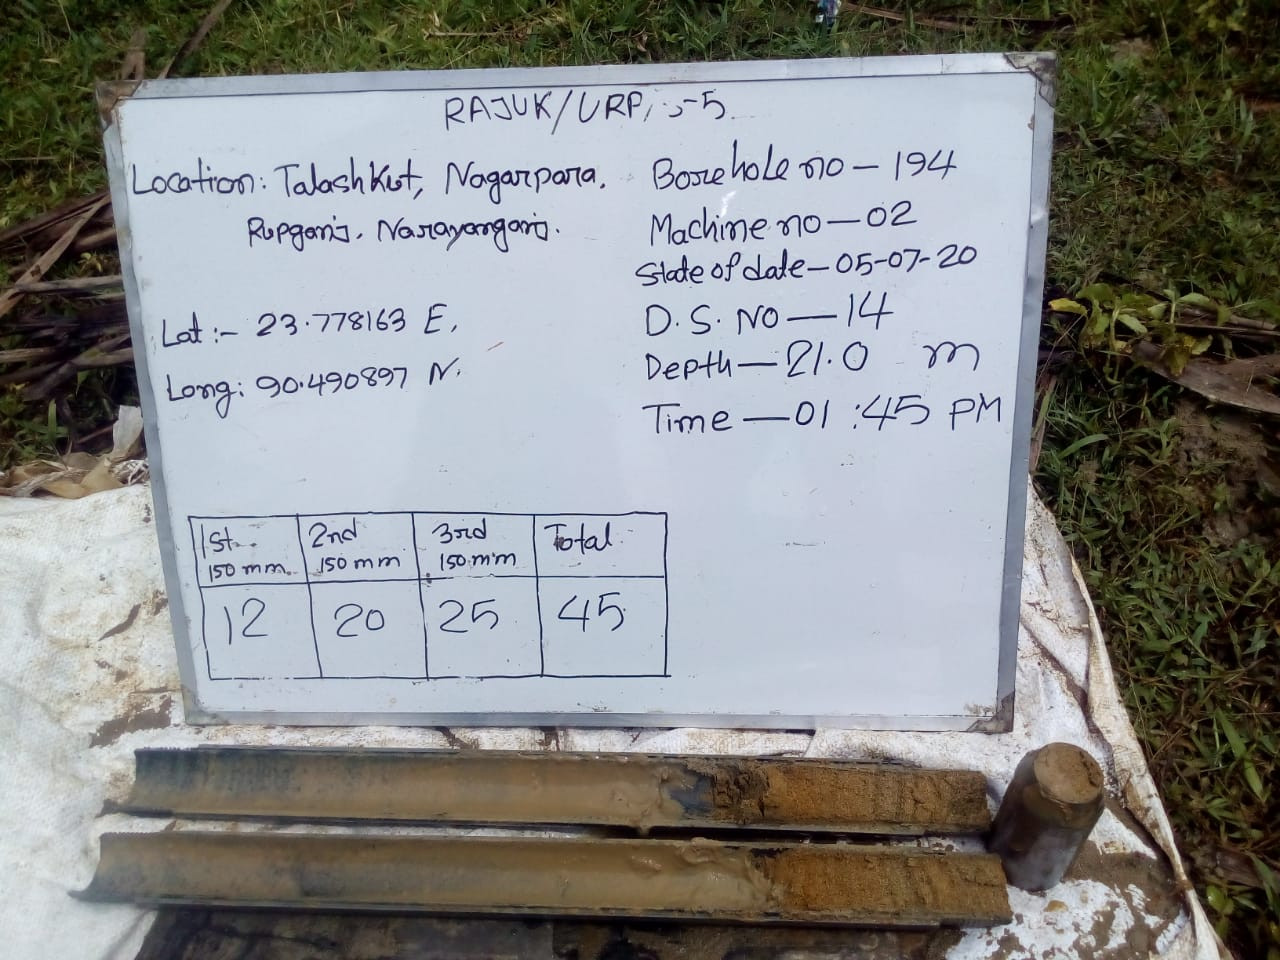 RAJUK/URP/S-5
Location: Talashkut, Nagarpara,
Rupganj, Narayanganj.
Lat:- 23.778163 E,
Long: 90.490897 N.
Borehole no - 194
Machine no - 02
State of date - 05-07-20
D.S. NO - 14
Depth - 21.0 m
Time - 01:45 PM
1st 150 mm 2nd 150 mm 3rd 150 mm Total
12 20 25 45